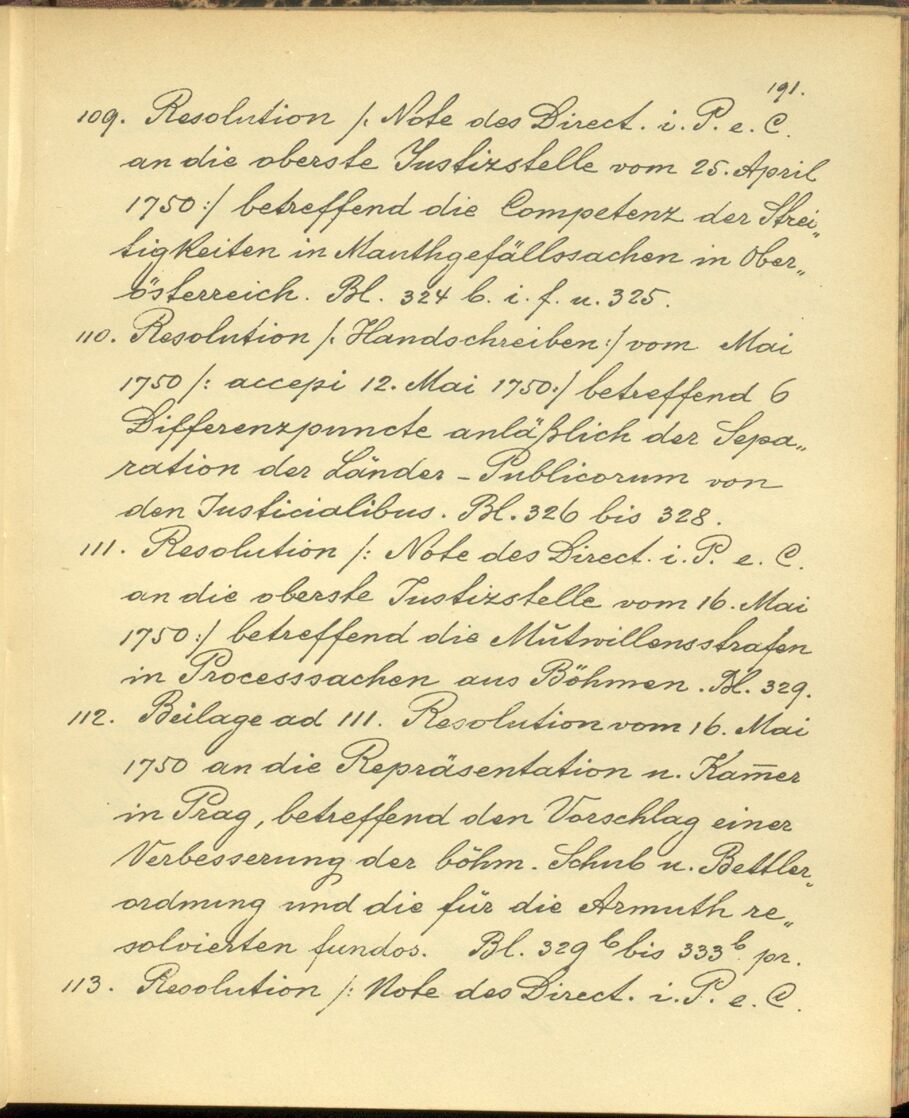 191.
109. Resolution /: Note des Direct. i. P. e. C.
an die oberste Justizstelle vom 25. April
1750 :/ betreffend die Competenz der Strei„
tigkeiten in Mauthgefällssachen in Ober„
österreich. Bl. 324 b. i. f. u. 325.
110. Resolution /: Handschreiben :/ vom Mai
1750 /: accepi 12. Mai 1750 :/ betreffend 6
Differenzpuncte anläßlich der Sepa„
ration der Länder - Publicorum von
den Justicialibus. Bl. 326 bis 328.
111. Resolution /: Note des Direct. i. P. e. C.
an die oberste Justizstelle vom 16. Mai
1750 :/ betreffend die Mutwillensstrafen
in Processsachen aus Böhmen. Bl. 329.
112. Beilage ad 111. Resolution vom 16. Mai
1750 an die Repräsentation u. Kam̅er
in Prag, betreffend den Vorschlag einer
Verbesserung der böhm. Schub u. Bettler„
ordnung und die für die Armuth re„
solvierten fundos. Bl. 329 b bis 333 b pr.
113. Resolution /: Note des Direct. i. P. e. C.